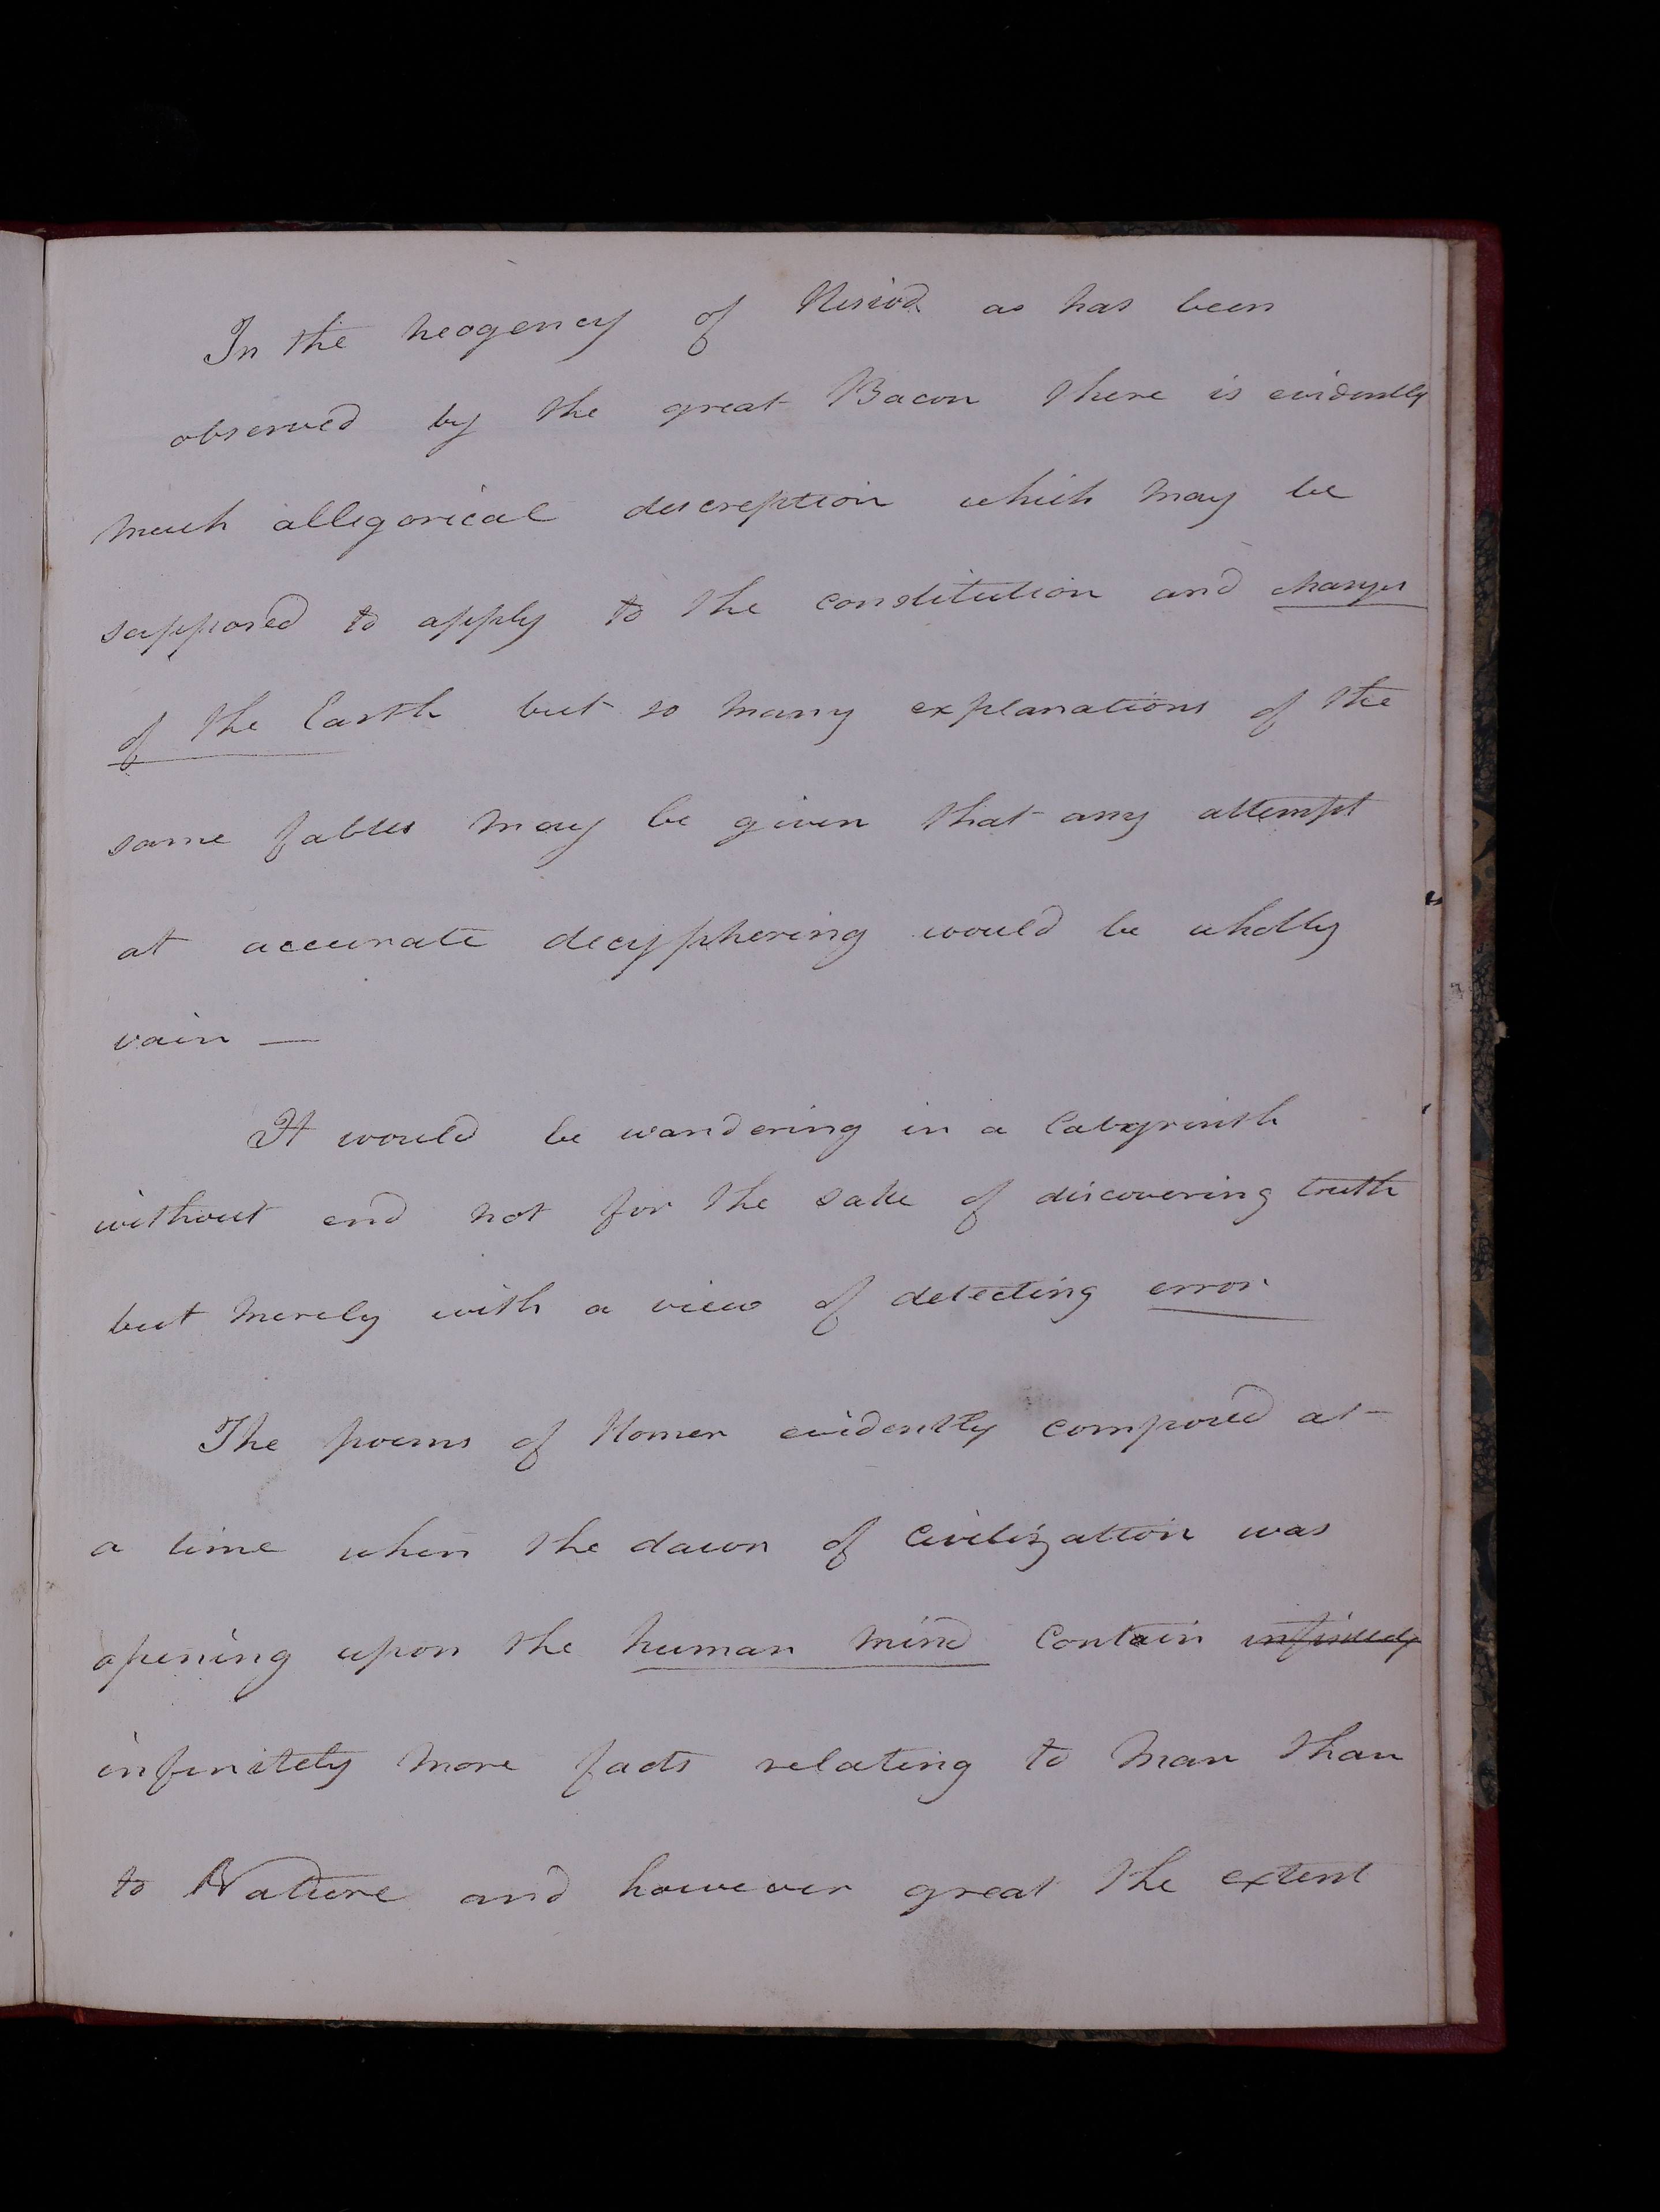 In the heogency of Hesiod as has been
observed by the great Bacon there is evidently
much allegorical description which may be
supposed to apply to the constitution and changes
of the Earth but so many explanations of the
same fables may be given that any attempt
at accurate decyphering would be wholly
vain —
It would be wandering in a labyrinth
without end not for the sake of discovering truth
but merely with a view of detecting error
The poems of Homer evidently composed at
a time when the dawn of Civilization was
opening upon the human mind contain
infinitely more facts relating to Man than
to Nature and however great the extent